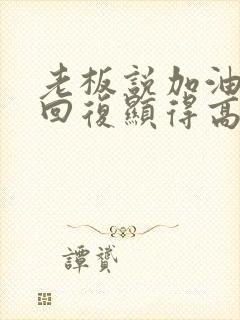 老板說加油
回復顯得高
譚贇